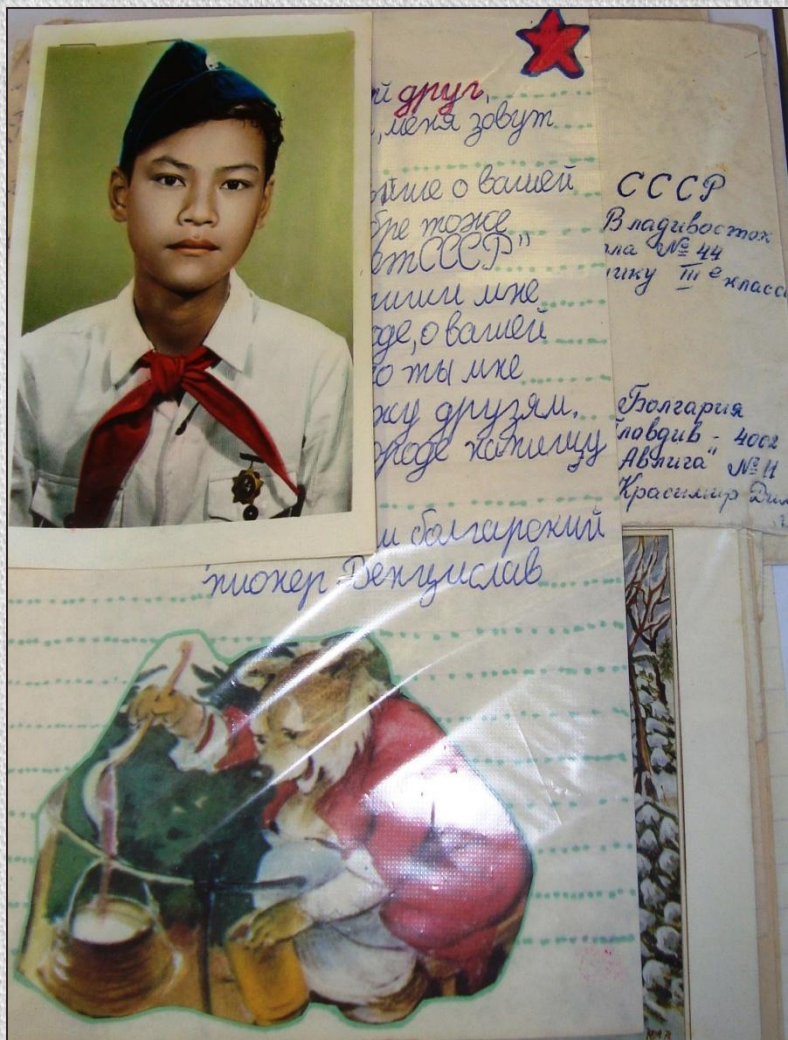 й друг,
, меня зовут
ьше о вашей
бре тоже
ет СССР"
пиши мне
оде, о вашей
о ты мне
жу друзям.
ороде напишу
м болгарский
пионер Венцислав
СССР
Владивосток
ла № 44
нику III е класса
Болгария
Пловдив - 4002
"Авлига" № 11
Красимир